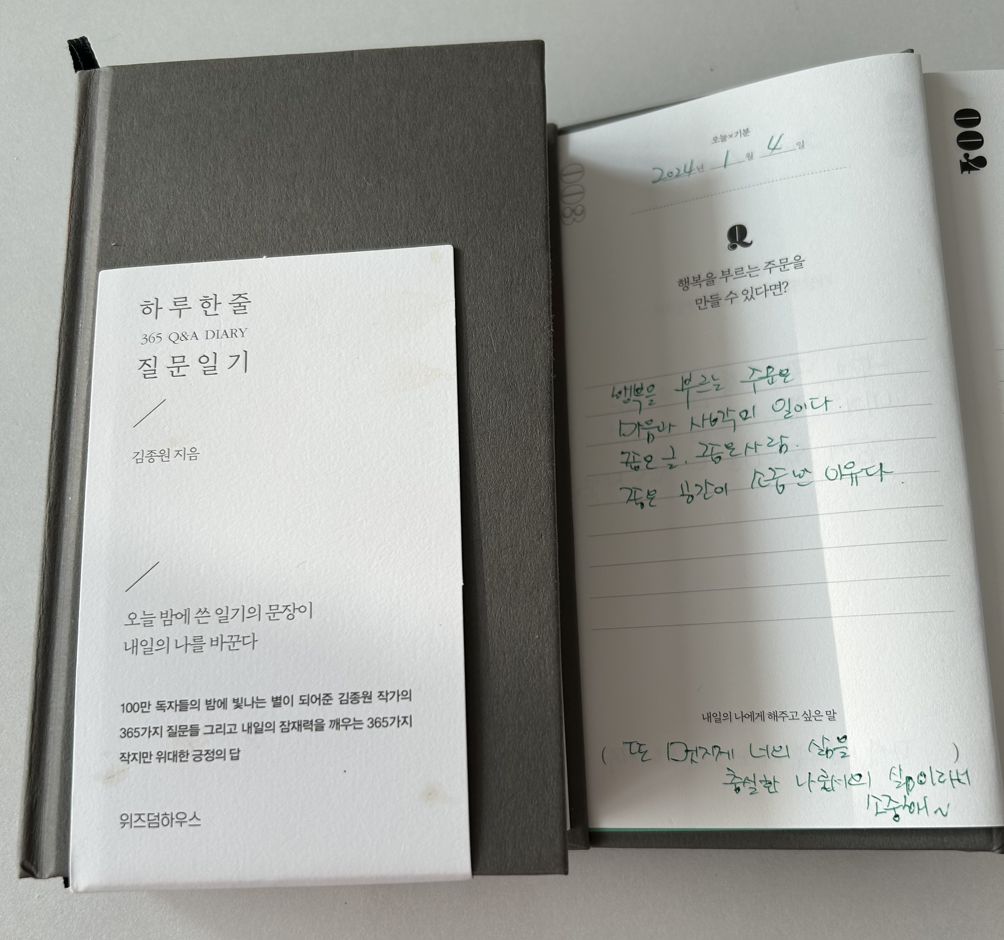 하루한줄
365 Q&A DIARY
질문일기
김종원 지음
오늘 밤에 쓴 일기의 문장이
내일의 나를 바꾼다
100만 독자들의 밤에 빛나는 별이 되어준 김종원 작가의
365가지 질문들 그리고 내일의 잠재력을 깨우는 365가지
작지만 위대한 긍정의 답
위즈덤하우스
003
오늘×기분
2024년 1월 4일
Q
행복을 부르는 주문을
만들 수 있다면?
행복을 부르는 주문은
마음과 생각의 일이다.
좋은 글, 좋은 사람.
좋은 공간이 소중한 이유다.
내일의 나에게 해주고 싶은 말
( 또 멋지게 너의 삶을 )
충실한 삶이라서
소중해~
004